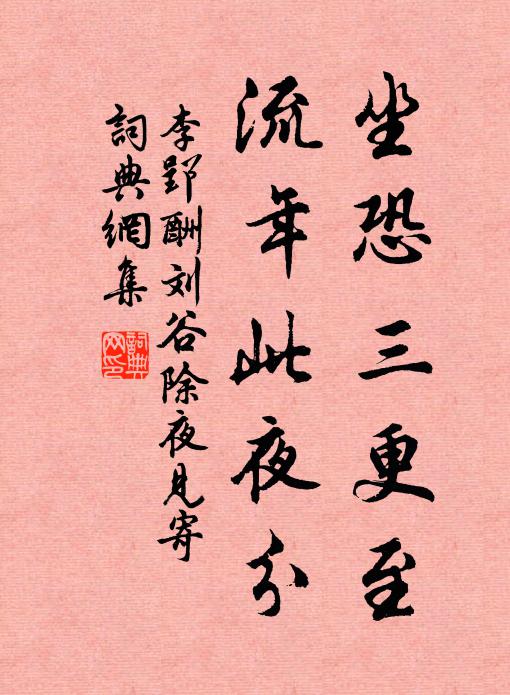 坐恐三更至
流年此夜分
李郢酬刘谷除夜見寄
詞典網集
詞典網印